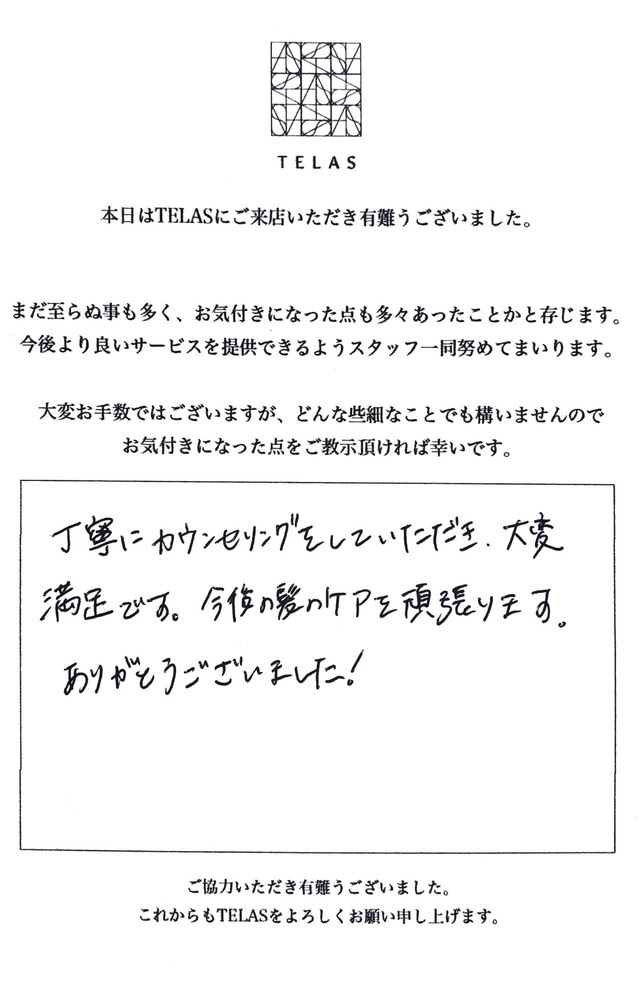 TELAS
本日はTELASにご来店いただき有難うございました。
まだ至らぬ事も多く、お気付きになった点も多々あったことかと存じます。
今後より良いサービスを提供できるようスタッフ一同努めてまいります。
大変お手数ではございますが、どんな些細なことでも構いませんので
お気付きになった点をご教示頂ければ幸いです。
丁寧にカウンセリングをしていただき、大変
満足です。今後の髪のケアを頑張ります。
ありがとうございました!
ご協力いただき有難うございました。
これからもTELASをよろしくお願い申し上げます。